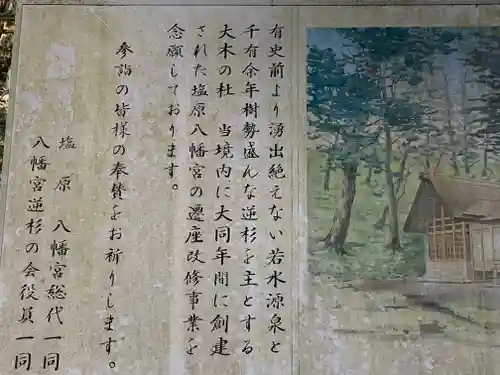 有史前より湧出絶えない若水源泉と
千有余年樹勢盛んな逆杉を主とする
大木の杜　当境内に大同年間に創建
された塩原八幡宮の遷座改修事業を
念願しております。
参詣の皆様の奉賛をお祈りします。
塩原　八幡宮総代一同
八幡宮逆杉の会役員一同